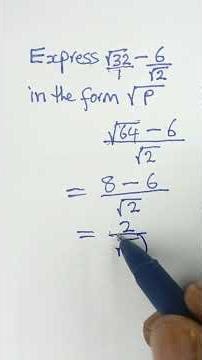 Express √32/1 − 6/√2
in the form √P
√64 − 6
√2
= 8 − 6
√2
= 2
√